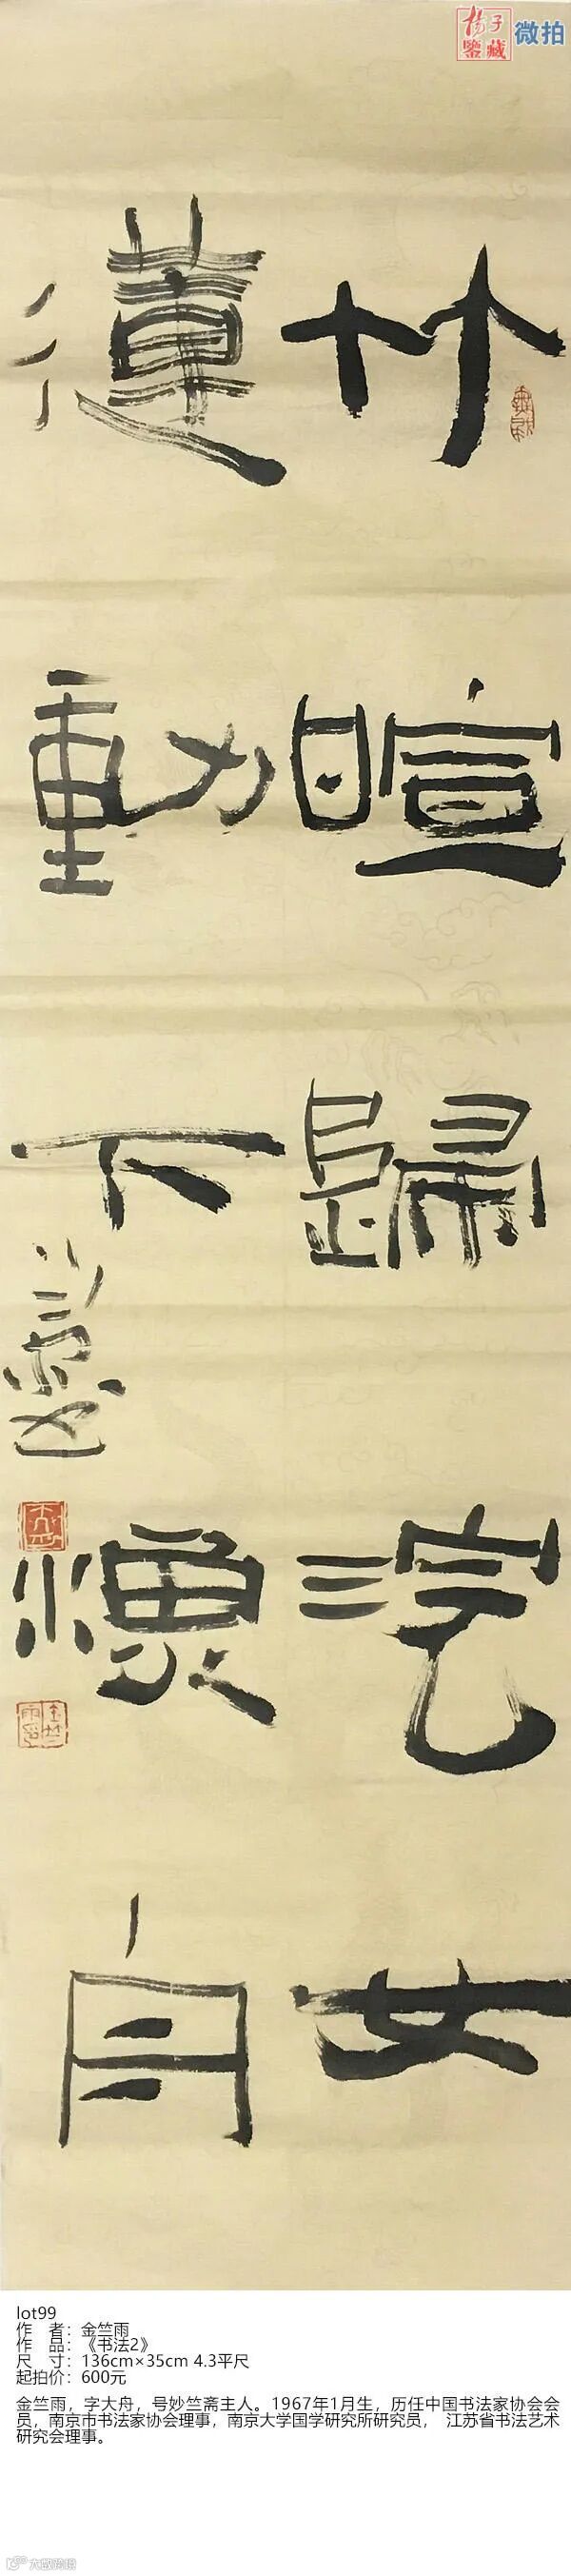 揚子
鑒藏
微拍
竹暄歸浣女
蓮動下漁舟
lot99
作　者：金竺雨
作　品：《书法2》
尺　寸：136cm×35cm 4.3平尺
起拍价：600元
金竺雨，字大舟，号妙竺斋主人。1967年1月生，历任中国书法家协会会
员，南京市书法家协会理事，南京大学国学研究所研究员， 江苏省书法艺术
研究会理事。